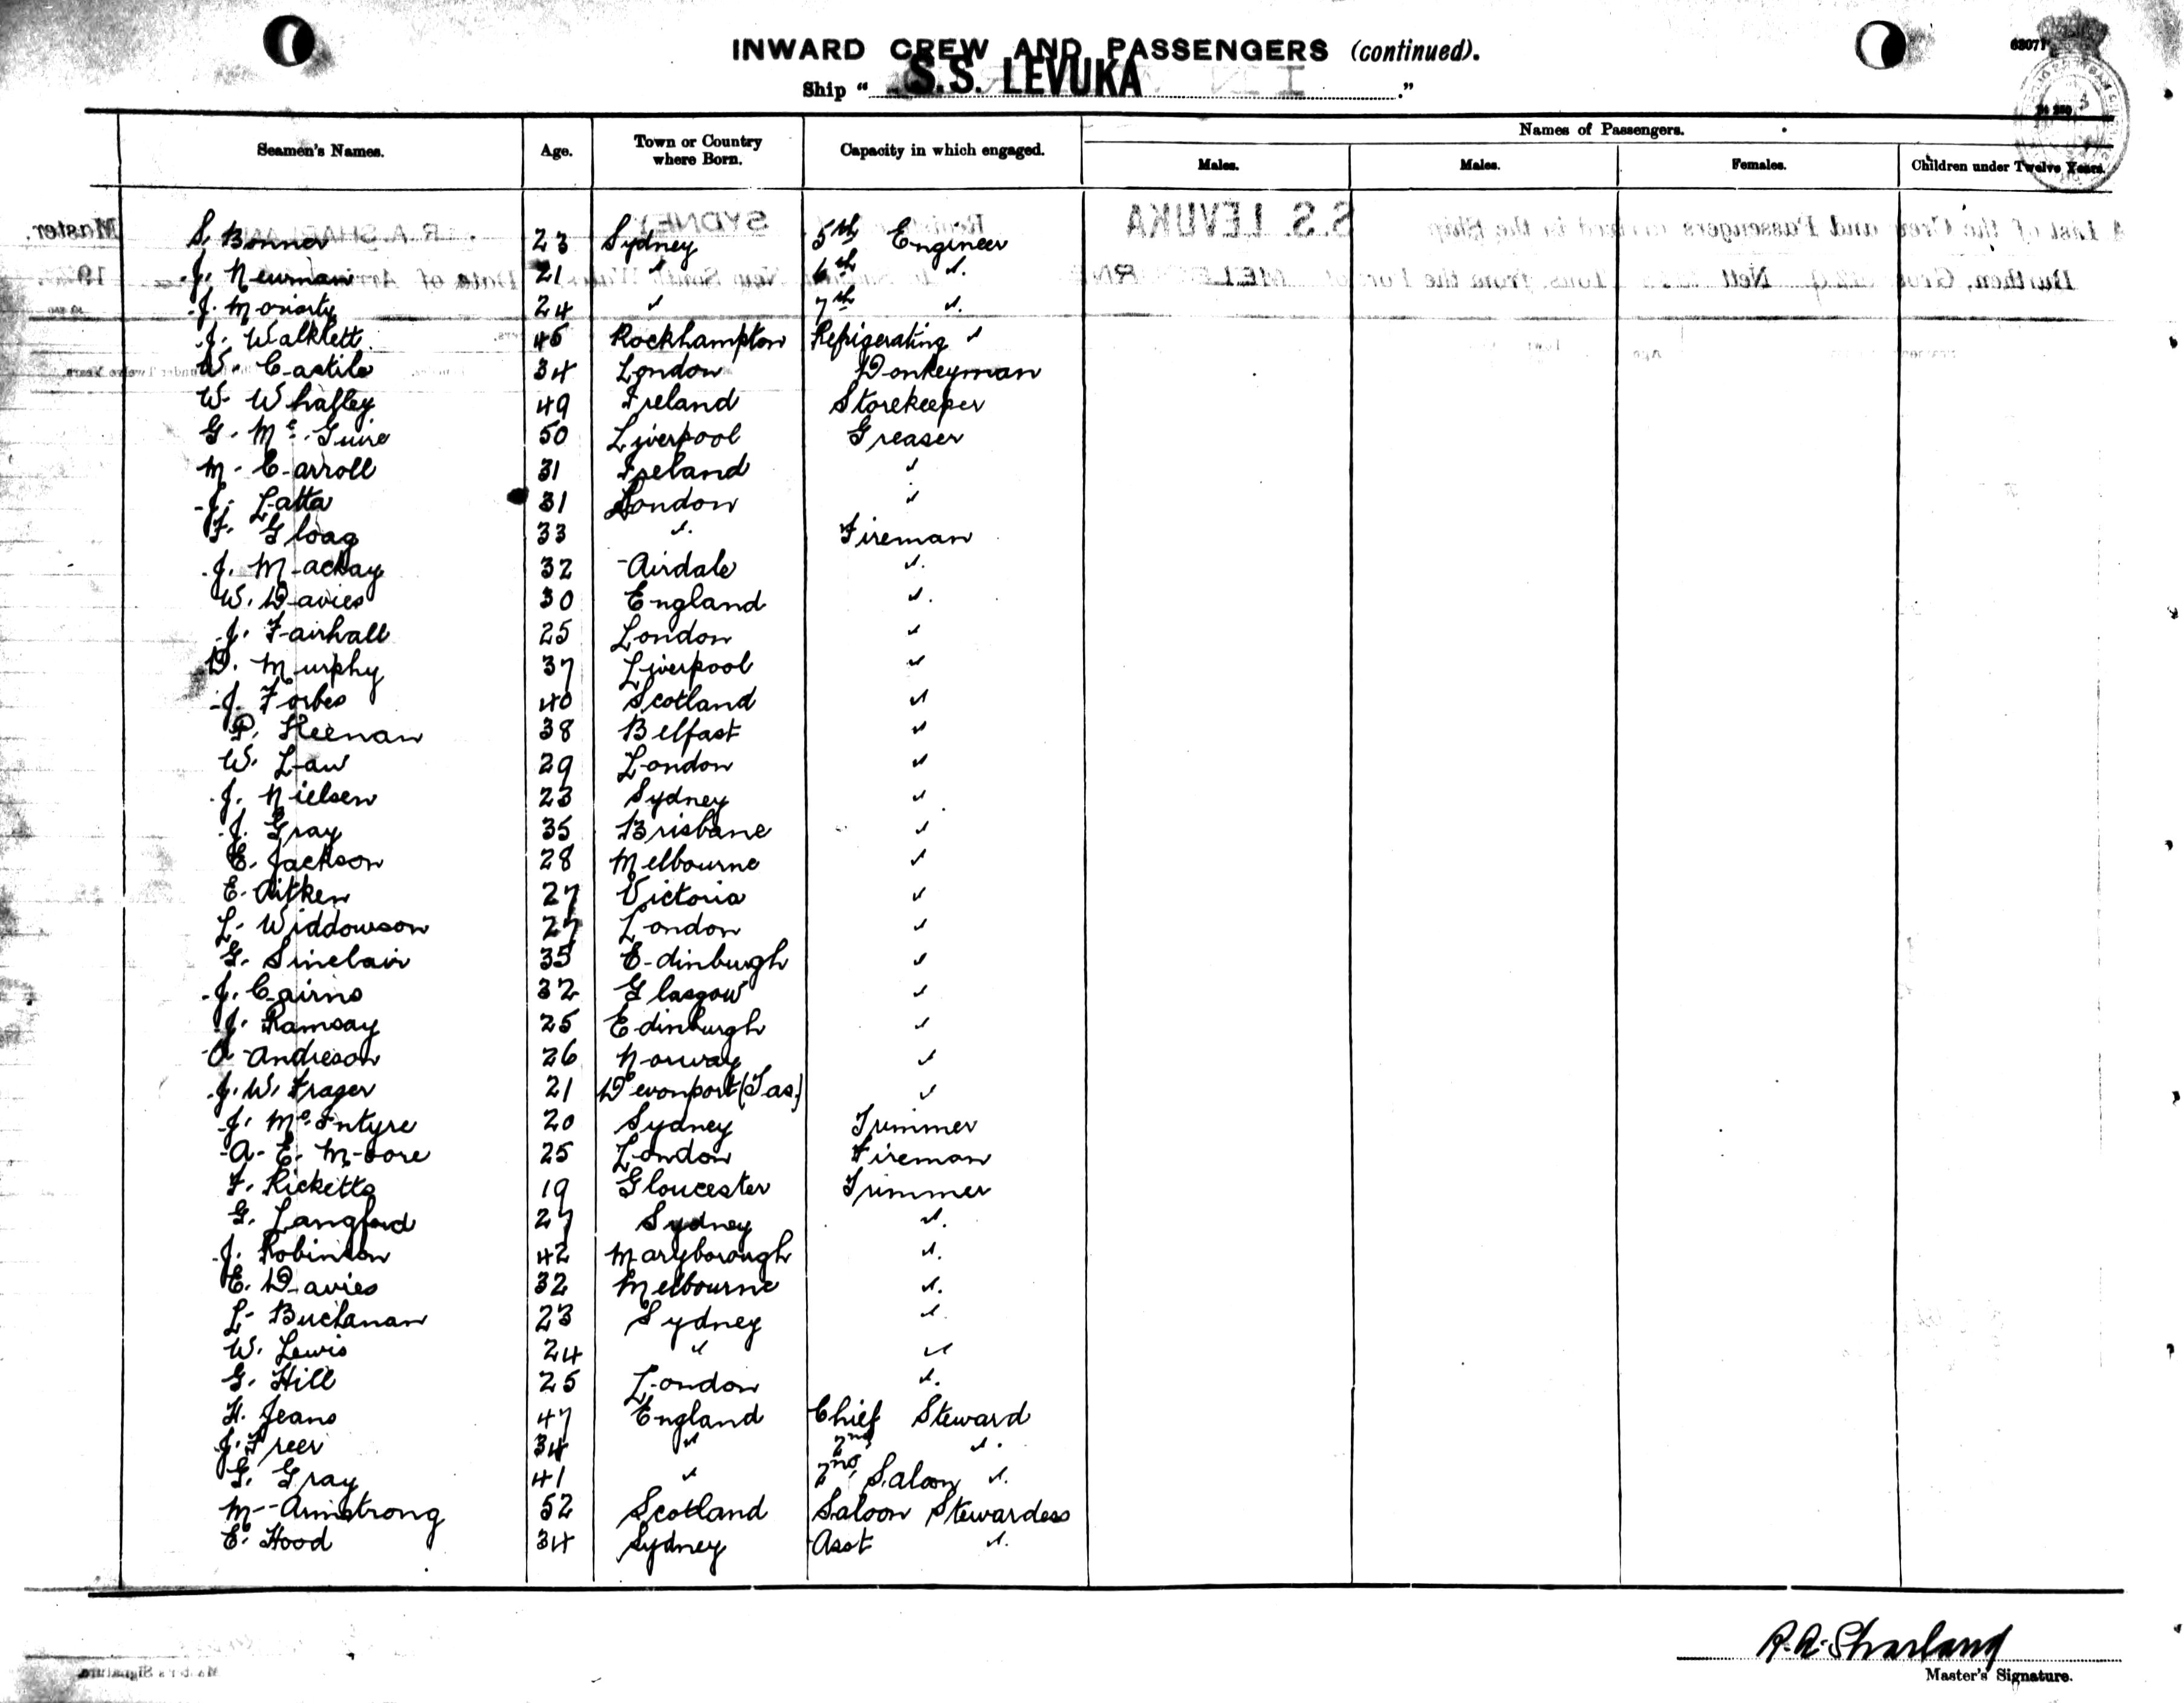 INWARD CREW AND PASSENGERS (continued).
63071
Ship "S.S. LEVUKA."
Names of Passengers.
Seamen's Names. Age. Town or Country where Born. Capacity in which engaged. Males. Males. Females. Children under Twelve Years.
S. Bonner 23 Sydney 5th Engineer
J. Newman 21 " 6th "
J. Moriarty 24 " 7th "
J. Walklett 45 Rockhampton Refrigerating "
W. Castile 34 London Donkeyman
W. Whalley 49 Ireland Storekeeper
G. Mc. Guire 50 Liverpool Greaser
M. Carroll 31 Ireland "
J. Latta 31 London "
F. Gloag 33 " Fireman
J. Mackay 32 Airdale "
W. Davies 30 England "
J. Fairhall 25 London "
D. Murphy 37 Liverpool "
J. Forbes 40 Scotland "
P. Heenan 38 Belfast "
W. Law 29 London "
J. Nielsen 23 Sydney "
J. Gray 35 Brisbane "
E. Jackson 28 Melbourne "
E. Aitken 27 Victoria "
L. Widdowson 27 London "
G. Sinclair 35 Edinburgh "
J. Cairns 32 Glasgow "
J. Ramsay 25 Edinburgh "
A Andreson 26 Norway "
J. W. Frager 21 Devonport (Tas.) "
J. Mc Intyre 20 Sydney Trimmer
A. E. Moore 25 London Fireman
F. Ricketts 19 Gloucester Trimmer
G. Langford 27 Sydney "
J. Robinson 42 Maryborough "
E. Davies 32 Melbourne "
L. Buchanan 23 Sydney "
W. Lewis 24 " "
G. Hill 25 London "
H. Jeans 47 England Chief Steward
J. Freer 34 " 2nd "
G. Gray 41 " 2nd Saloon "
M. Armstrong 52 Scotland Saloon Stewardess
E. Hood 34 Sydney Asst "
R. A. Sharland
Master's Signature.